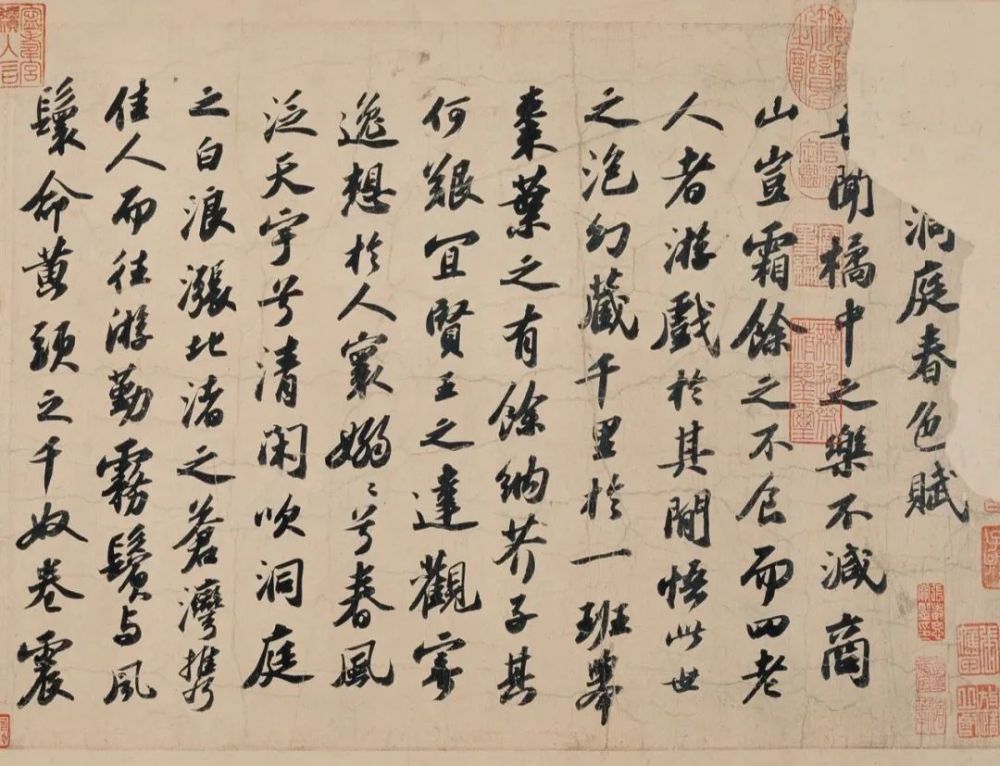 洞庭春色賦
聞橘中之樂不減商
山豈霜餘之不食而四老
人者游戲於其間悟此世
之泡幻藏千里於一班舉
棗葉之有餘納芥子其
何艱宜賢王之達觀寄
逸想於人寰嫋〻兮春風
泛天宇兮清閑吹洞庭
之白浪漲北渚之蒼灣攜
佳人而往游勤霧鬢与風
鬟命黃頭之千奴卷震